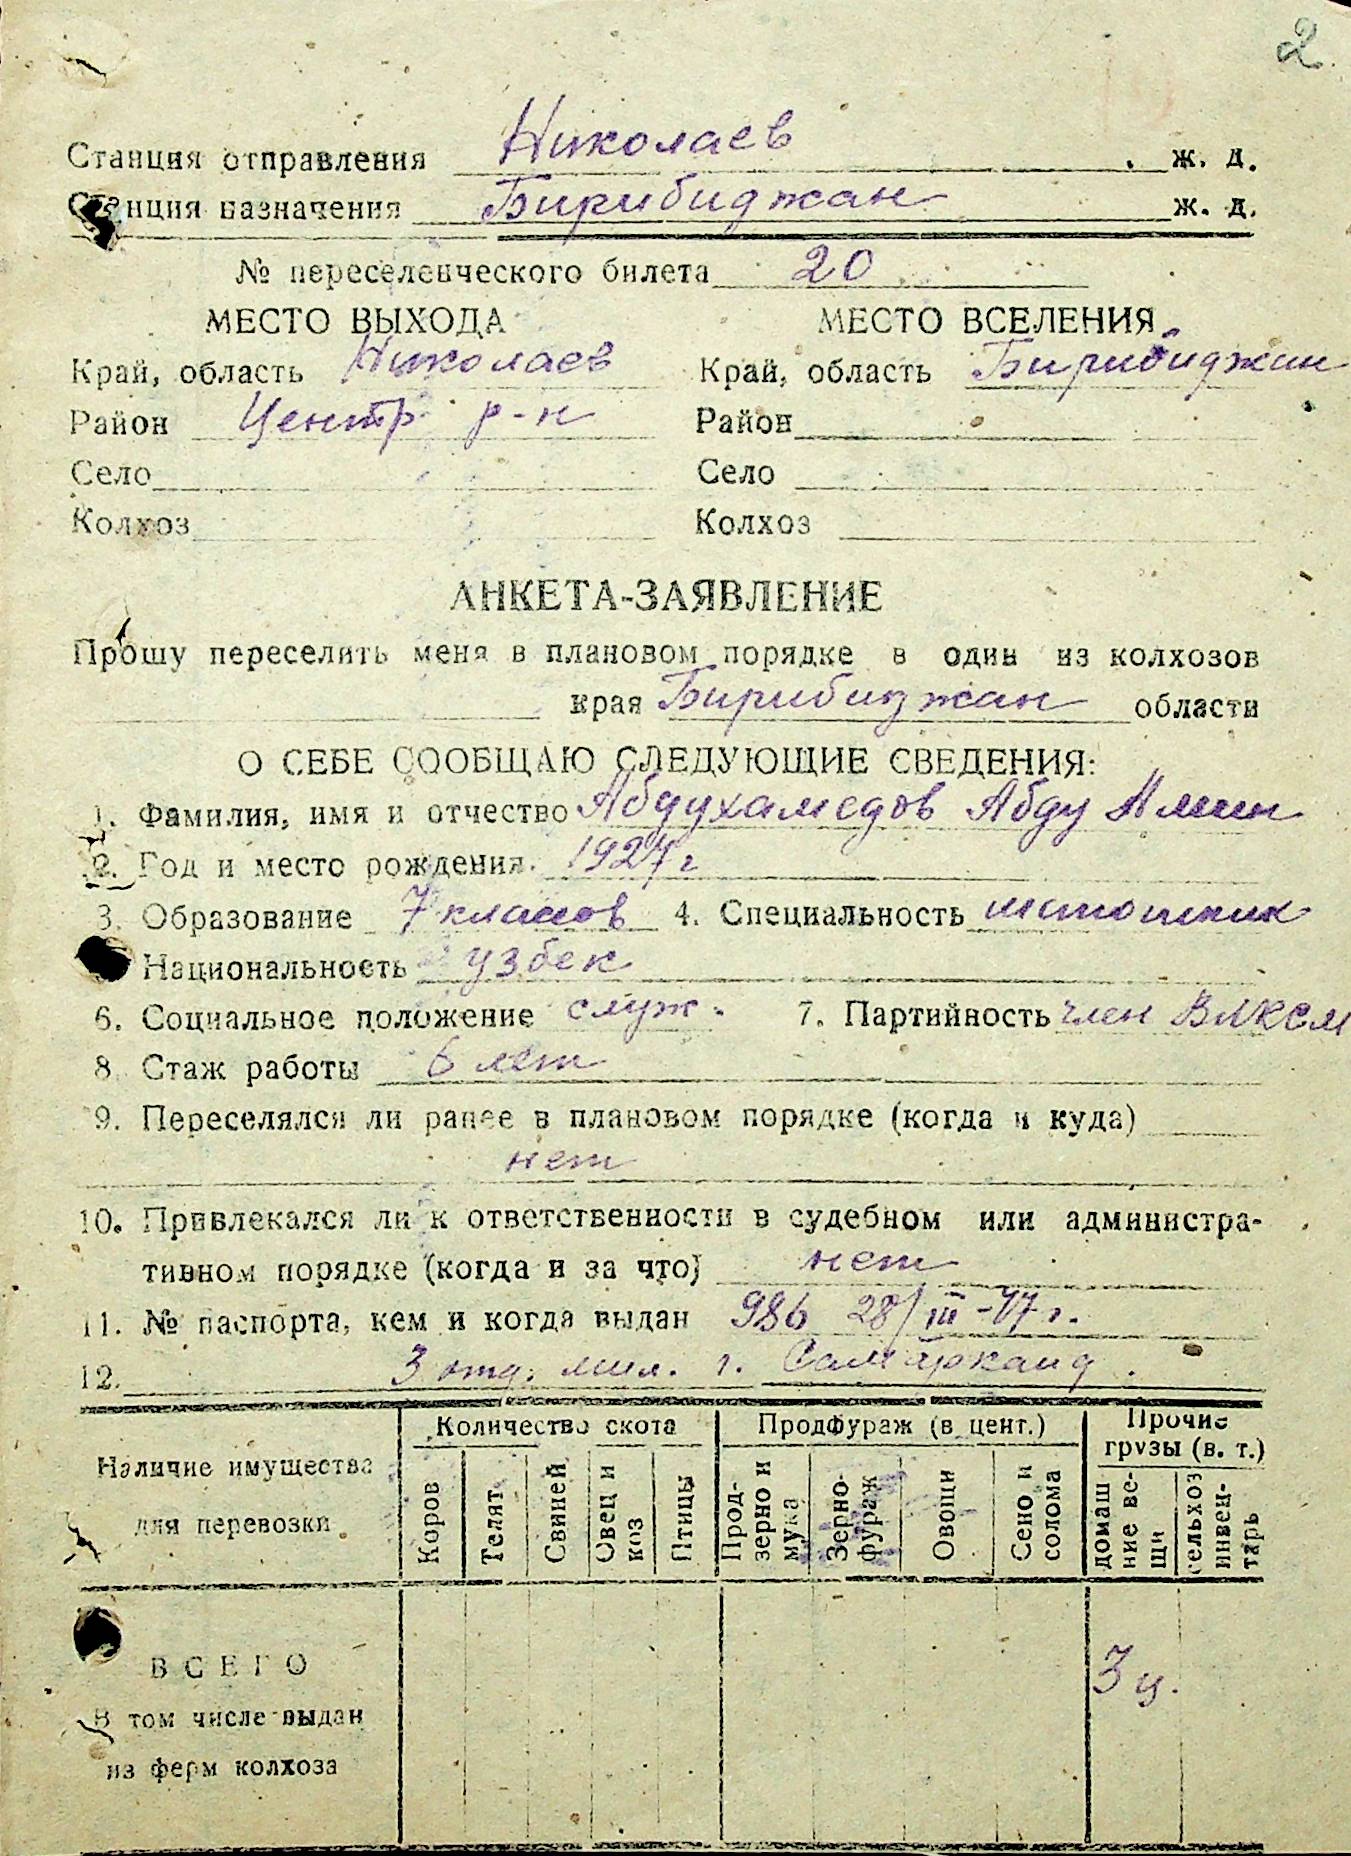 2
Станция отправления Николаев ж. д.
Станция назначения Бирибиджан ж. д.
№ переселенческого билета 20
МЕСТО ВЫХОДА МЕСТО ВСЕЛЕНИЯ
Край, область Николаев Край, область Бирибиджан
Район Центр. р-н Район
Село Село
Колхоз Колхоз
АНКЕТА-ЗАЯВЛЕНИЕ
Прошу переселить меня в плановом порядке в один из колхозов
края Бирибиджан области
О СЕБЕ СООБЩАЮ СЛЕДУЮЩИЕ СВЕДЕНИЯ:
1. Фамилия, имя и отчество Абдухамедов Абду Амин
2. Год и место рождения. 1927 г
3. Образование 7 классов 4. Специальность
Национальность узбек
6. Социальное положение служ. 7. Партийность член ВЛКСМ
8 Стаж работы 6 лет
9. Переселялся ли ранее в плановом порядке (когда и куда)
нет
10. Привлекался ли к ответственности в судебном или администра-
тивном порядке (когда и за что) нет
11. № паспорта, кем и когда выдан 986 28/III-47 г.
12. 3 отд. мил. г. Самарканд.
Наличие имущества для перевозки
Количество скота
Продфураж (в цент.)
Прочие грузы (в. т.)
Коров
Телят
Свиней
Овец и коз
Птицы
Прод-зерно и мука
Зерно-фураж
Овощи
Сено и солома
домашние вещи
сельхоз инвен-тарь
ВСЕГО 3 ц.
В том числе выдан
из ферм колхоза